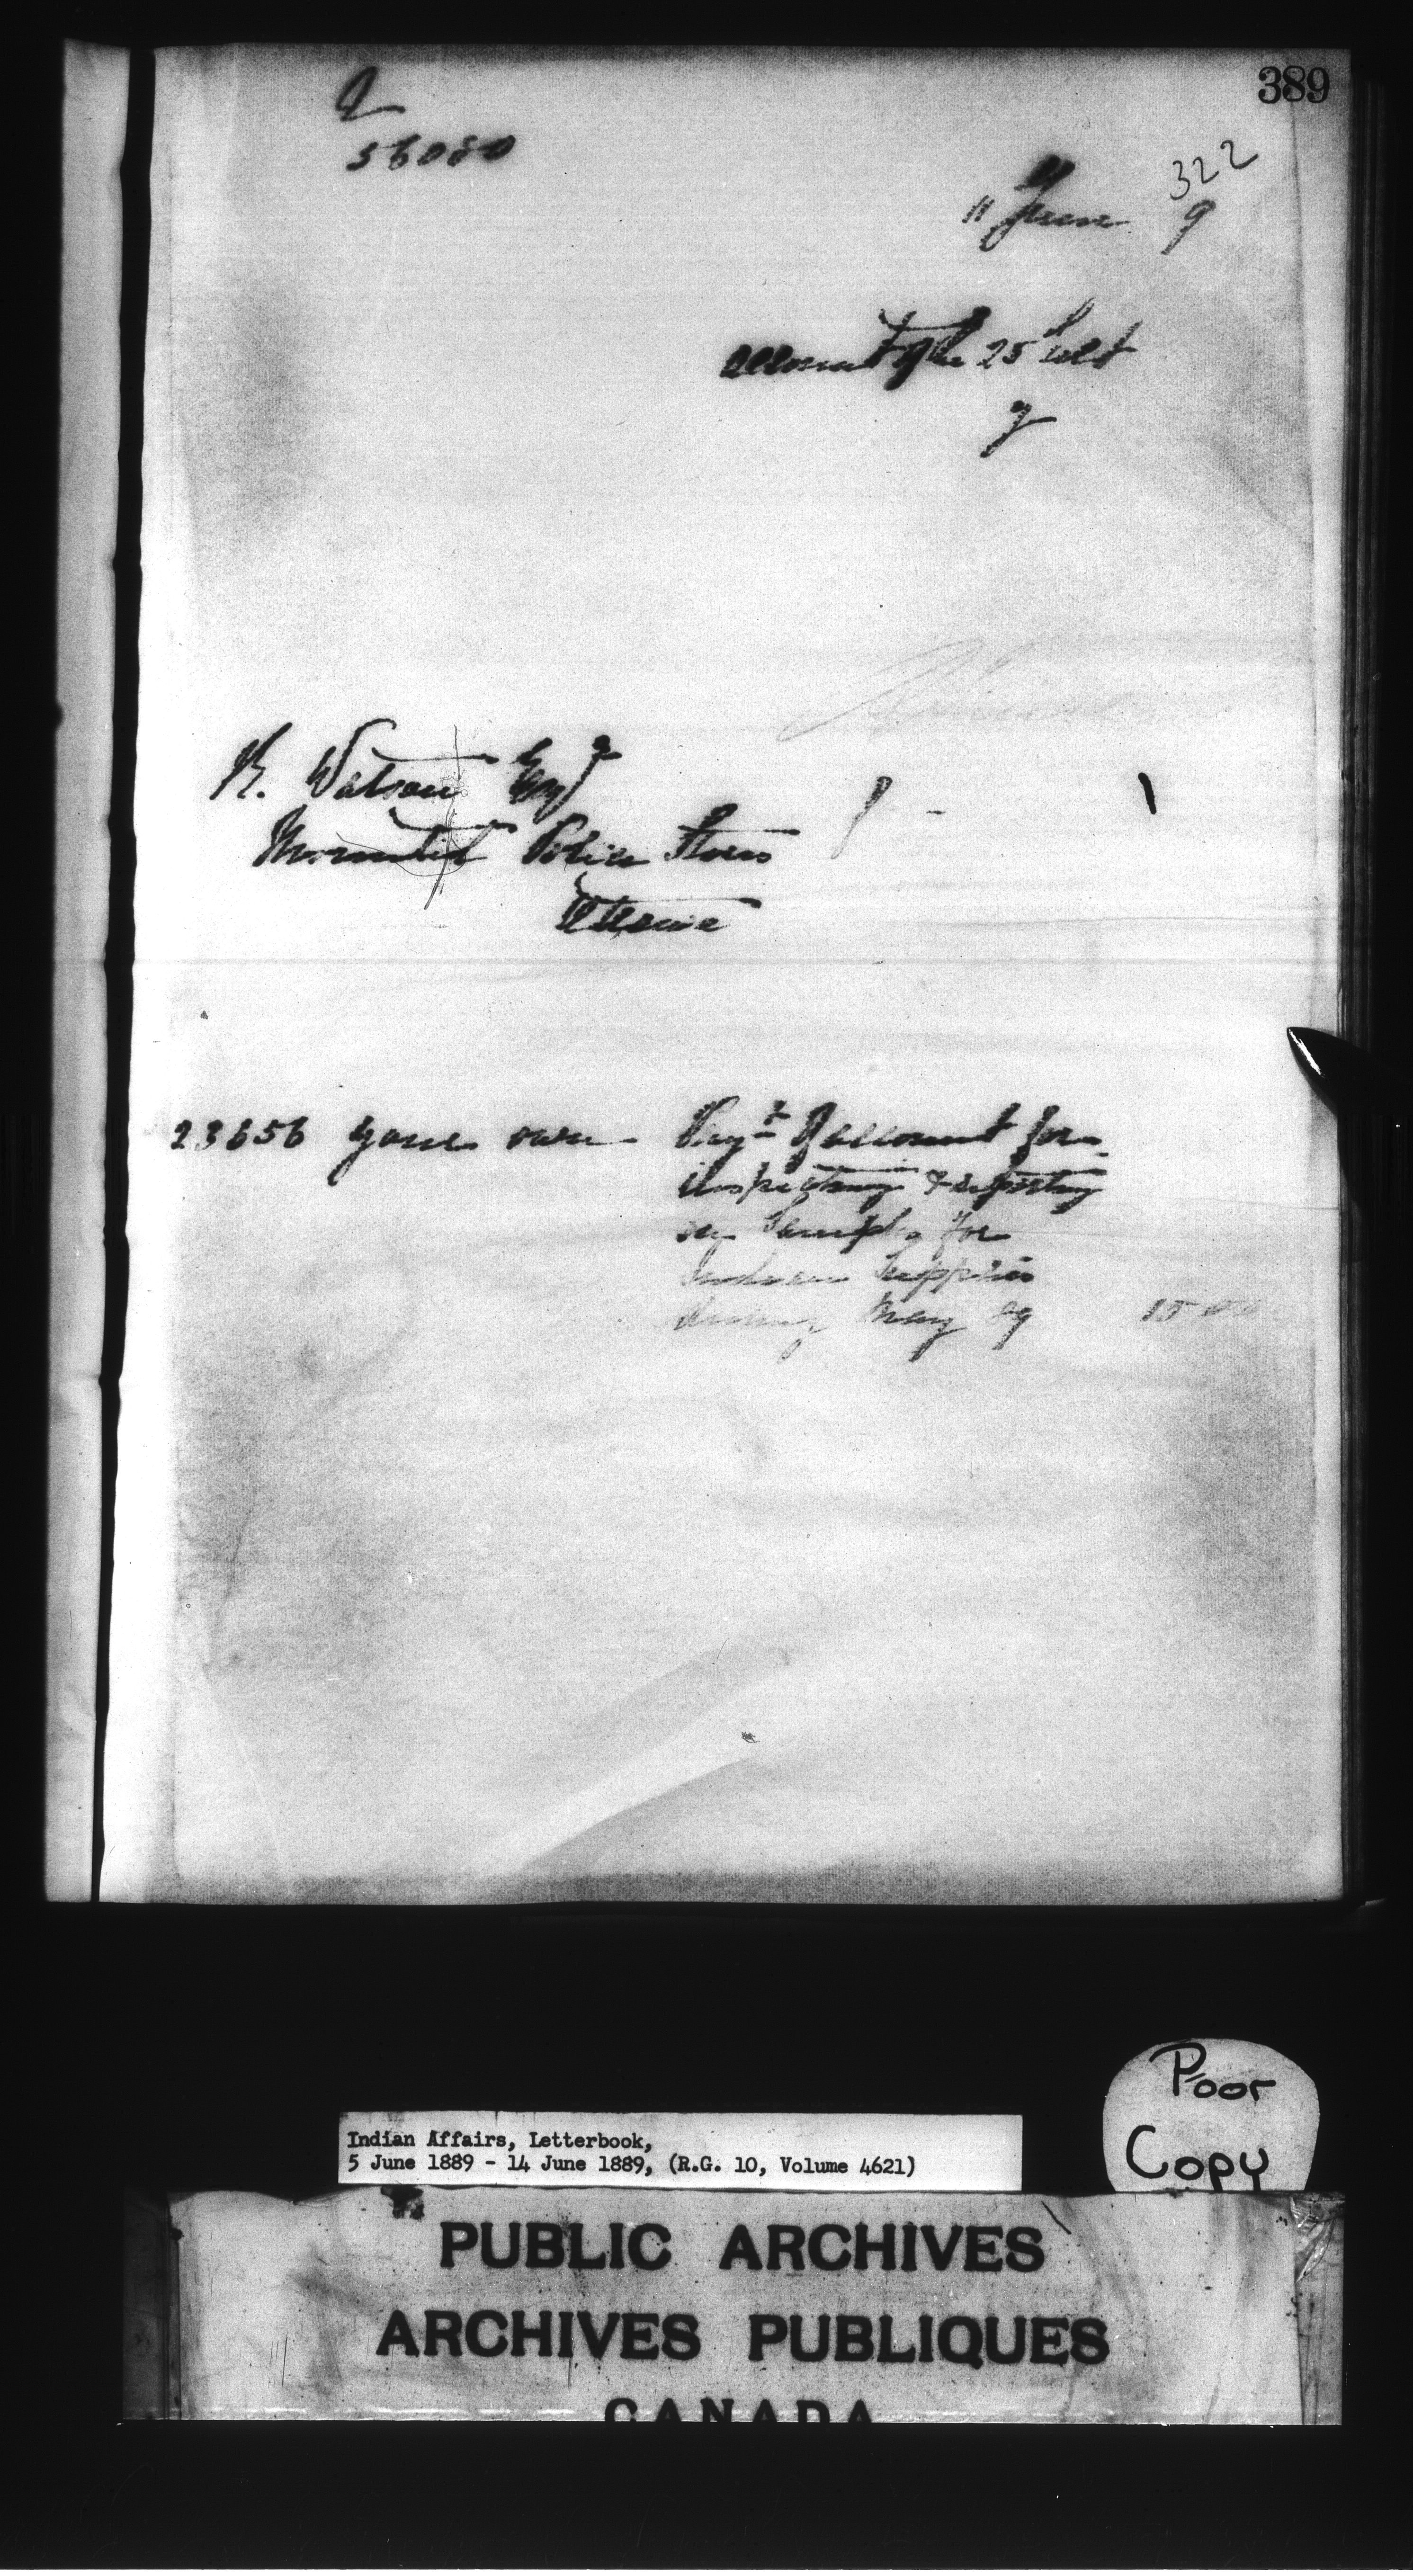 389
56080
322
11 June 9
account of the 25th ult
R. Watson Esqr
Mounted Police Stores
Ottawa
23656 your own Payt of account for
inspecting & reporting
on Samples for
Indian Supplies
during May 89 15 00
Poor
Copy
Indian Affairs, Letterbook,
5 June 1889 - 14 June 1889, (R.G. 10, Volume 4621)
PUBLIC ARCHIVES
ARCHIVES PUBLIQUES
CANADA